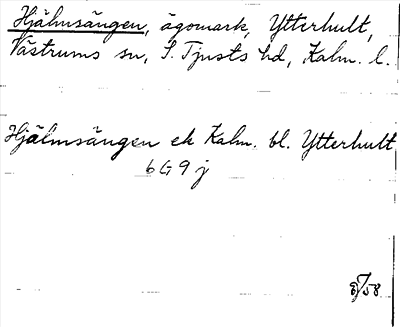 Hjälmsängen, ägomark, Ytterhult,
Västrums sn, S. Tjusts hd, Kalm. l.
Hjälmsängen ek Kalm. bl. Ytterhult
6G9j